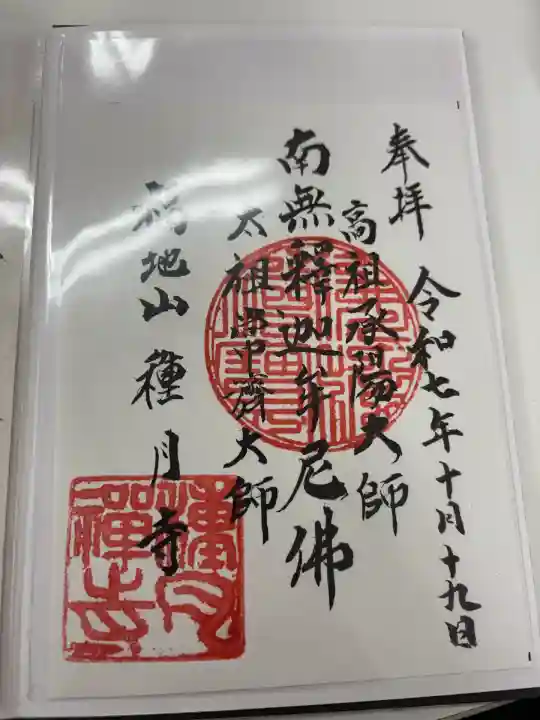 奉拝
令和七年十月十九日
高祖承陽大師
南無釋迦牟尼佛
太祖常濟大師
地山種月寺
種月
禪寺